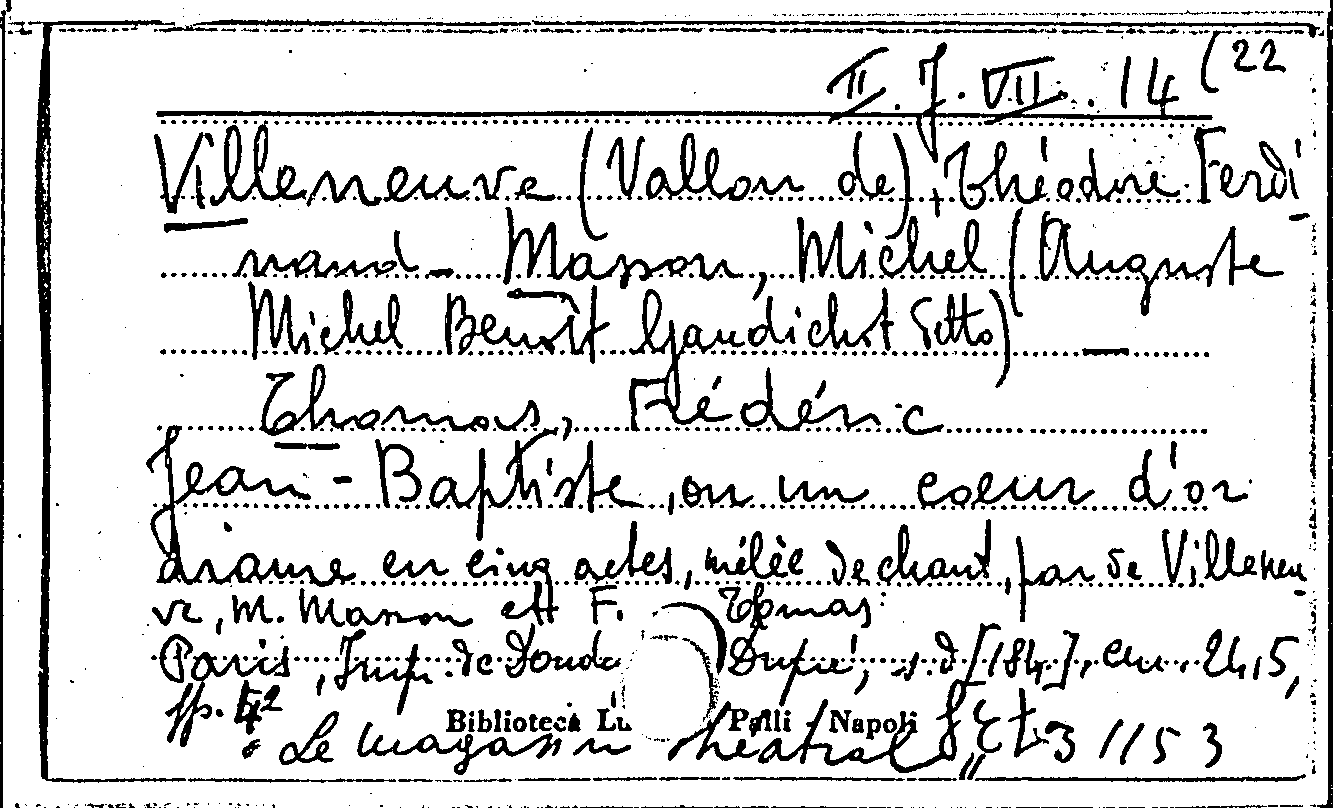 II. J. VII. 14 (22
Villeneuve (Vallon de), Théodore Ferdi-
nand - Masson, Michel (Auguste
Michel Benoît Gaudichot detto) —
Thomas, Frédéric
Jean-Baptiste, ou un coeur d'or
drame en cinq actes, mêlée de chant, par de Villeneu-
ve, M. Masson et F. Thomas
Paris, Imp. de Dondé Dupré, s.d [184.], cm. 24,5,
pp. 42
Biblioteca Lu Palli - Napoli
Le magasin théatral 3 1153